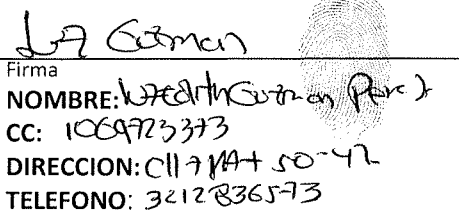 Luz Guzman
Firma
NOMBRE: Guzman Perez
CC: 1069723373
DIRECCION: Cll 7 50-42
TELEFONO: 3212836573